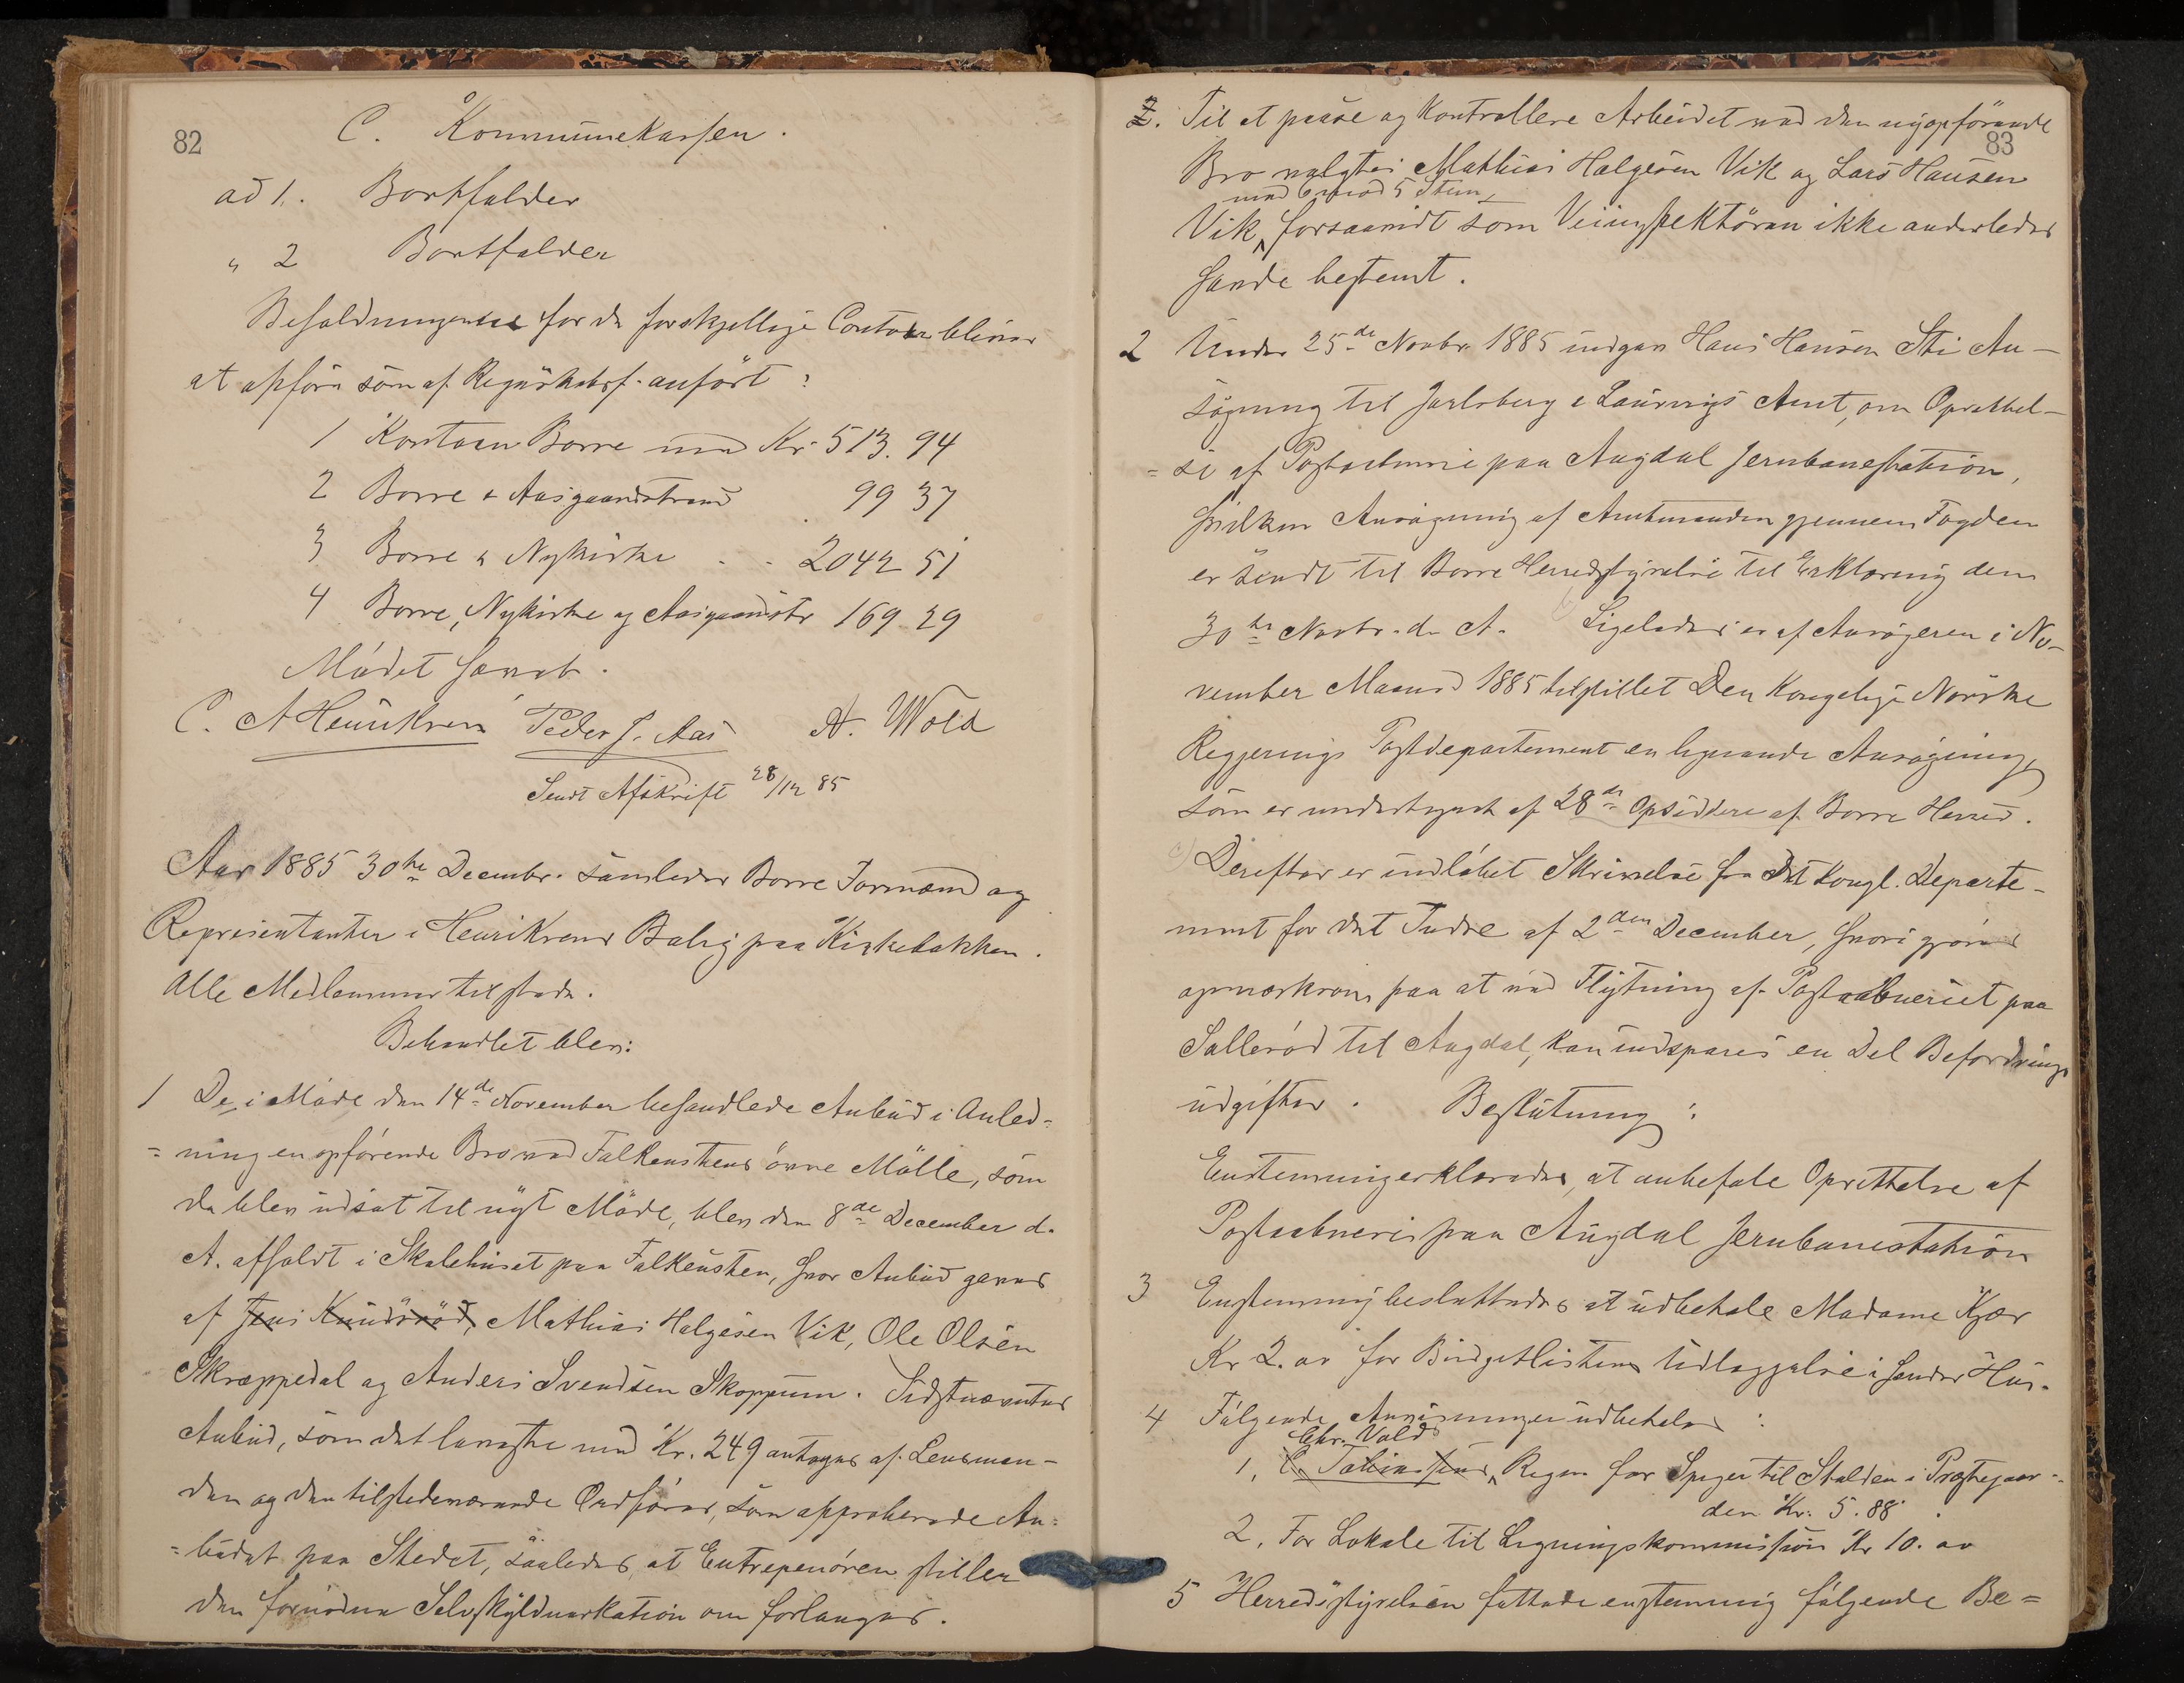 82
C. Kommunekassen.
ad 1. Bortfalder
„ 2 Bortfalder
Beholdningerne for de forskjellige Contoer bliver
at opføre som af Regnskabsf. anført:
1 Kontoen Borre med Kr. 513. 94
2 Borre & Aasgaardstrand 99 37
3 Borre & Nykirke . . 2042 51
4 Borre, Nykirke og Aasgaardstr 169 29
Mødet hævet.
C. A Henriksen Peder J. Aas A. Wold
Sendt Afskrift 28/12 85
Aar 1885 30te Decembr. samledes Borre Formænd og
Repræsentanter i Henriksens Bolig paa Kirkebakken.
Alle Medlemmer tilstede.
Behandlet blev:
1 De i Møde den 14de November behandlede Anbud i Anled-
=ning en opførende Bro ved Falkenstens øvre Mølle, som
da blev udsat til nyt Møde, blev den 8de December d.
A. afholdt i Skolehuset paa Falkensten, hvor Anbud gaves
af Jens Knudsrød, Mathias Helgesen Vik, Ole Olsen
Skreppedal og Anders Svendsen Skoppum. Sidstnævntes
Anbud, som det laveste med Kr. 249 antoges af Lensman-
den og den tilstedeværende Ordfører, som approberede An-
=budet paa Stedet, saaledes, at Entrepenøren stiller
den fornødne Selvskyldnerkation om forlanges.
83
2. Til at paase og kontrollere Arbeidet ved den nyopførende
Bro valgtes Mathias Helgesen Vik og Lars Hansen
med 6 mod 5 Stem.
Vik, forsaavidt som Veiinspektøren ikke anderledes
havde bestemt.
2 Under 25de Novbr 1885 indgav Hans Hansen Sti An-
søgning til Jarlsberg & Laurvigs Amt, om Oprettel-
=se af Postaabneri paa Augdal Jernbanestation,
hvilken Ansøgning af Amtmanden gjennem Fogden
er sendt til Borre Herredsstyrelse til Erklæring den
30te Novbr. d. A. Ligeledes er af Ansøgeren i No-
vember Maaned 1885 tilstillet Den Kongelige Norske
Regjerings Postdepartement en lignende Ansøgning,
som er undertegnet af 28de Opsiddere af Borre Herred.
Derefter er indløbet Skrivelse fra Det Kongl. Departe-
ment for det Indre af 2den December, hvori gjøres
opmærksom paa at ved Flytning af Postaabneriet paa
Sollerød til Augdal, kan indspares en Del Befordrings
udgifter. Beslutning:
Enstemmig erklæredes, at anbefale Oprettelse af
Postaabneri paa Augdal Jernbanestation
3 Enstemmig besluttedes at udbetale Madame Kjær
Kr 2. oo for Budgetlistens Udlæggelse i hendes Hus.
4 Følgende Anvisninger udbetales:
Chr. Volds
1, C. Tobiassens Regn. for Spiger til Stalden i Præstegaar-
den Kr. 5. 88
2, For Lokale til Ligningskommission Kr 10. oo
5 Herredsstyrelsen fattede enstemmig følgende Be=